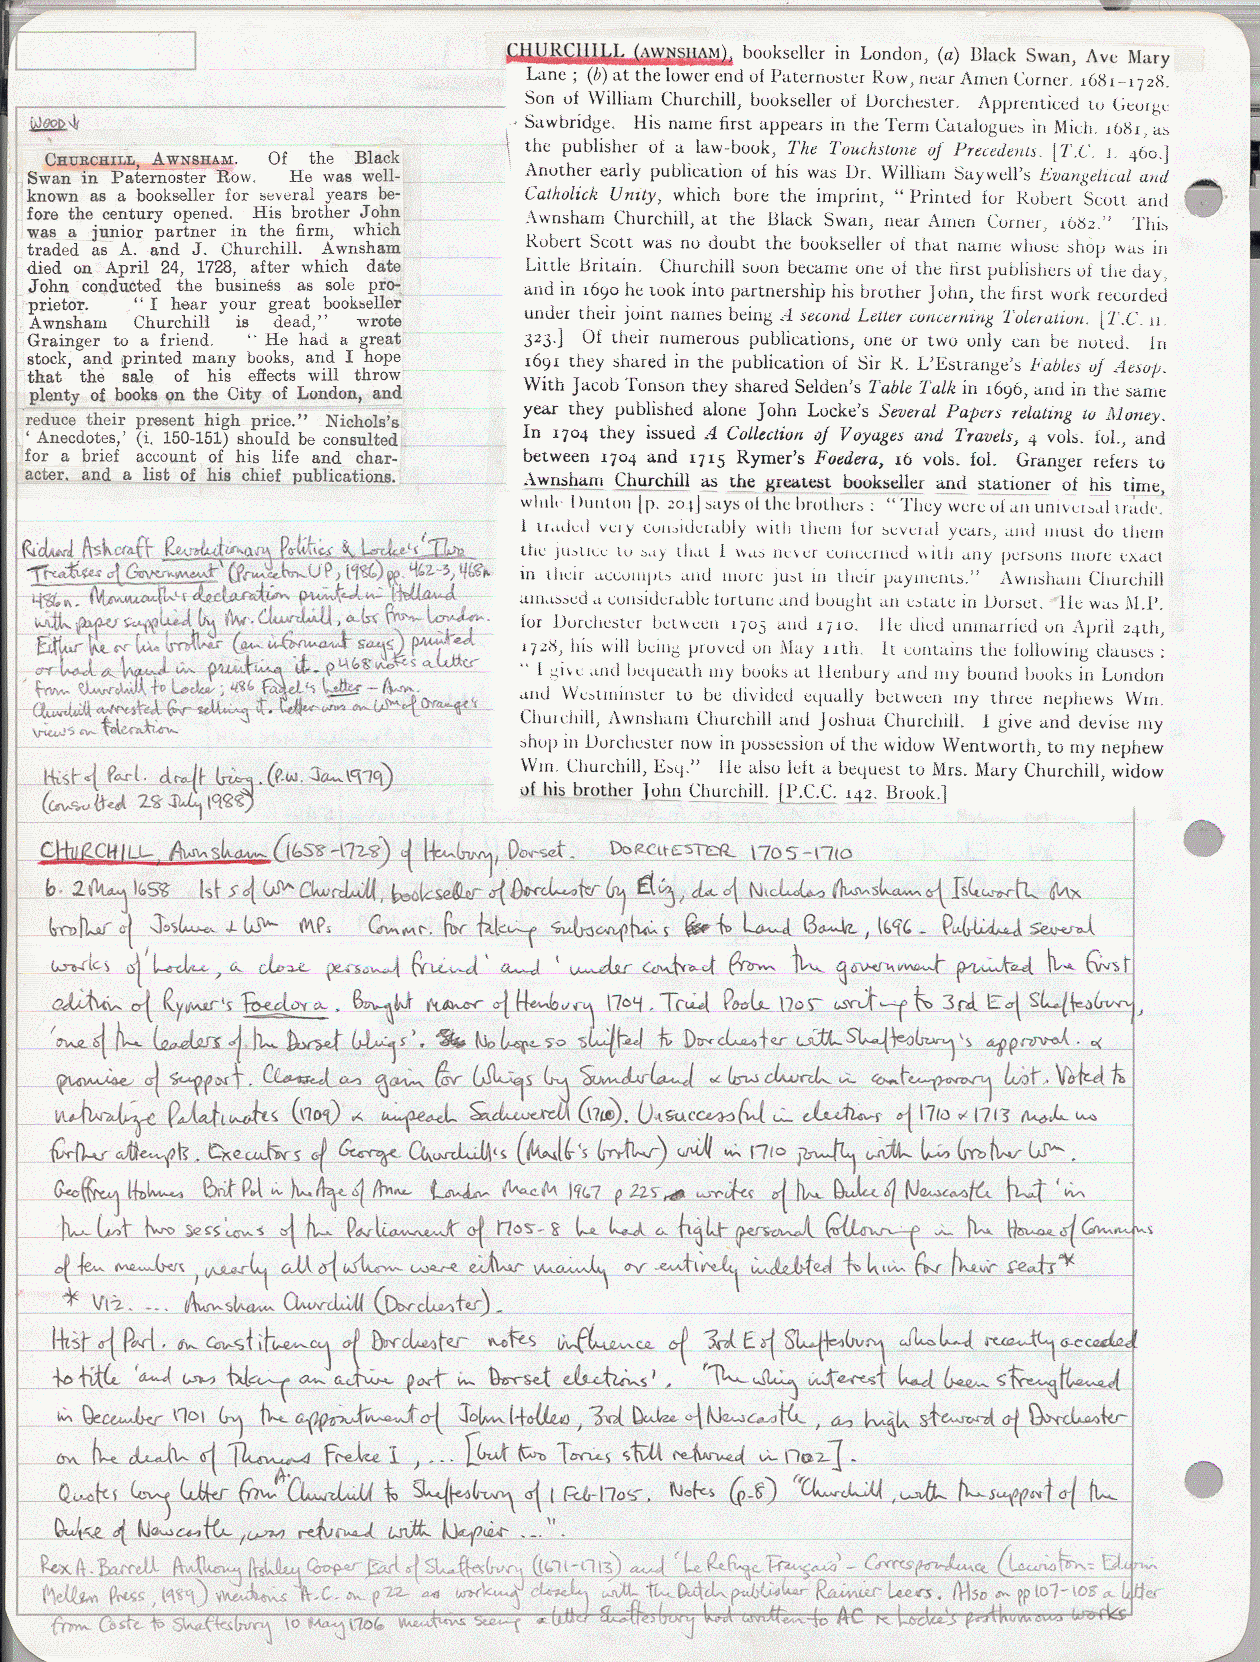 WOOD↓
CHURCHILL, AWNSHAM. Of the Black
Swan in Paternoster Row. He was well-
known as a bookseller for several years be-
fore the century opened. His brother John
was a junior partner in the firm, which
traded as A. and J. Churchill. Awnsham
died on April 24, 1728, after which date
John conducted the business as sole pro-
prietor. "I hear your great bookseller
Awnsham Churchill is dead," wrote
Grainger to a friend. "He had a great
stock, and printed many books, and I hope
that the sale of his effects will throw
plenty of books on the City of London, and
reduce their present high price." Nichols's
'Anecdotes,' (i. 150-151) should be consulted
for a brief account of his life and char-
acter, and a list of his chief publications.
CHURCHILL (AWNSHAM), bookseller in London, (a) Black Swan, Ave Mary
Lane; (b) at the lower end of Paternoster Row, near Amen Corner. 1681-1728.
Son of William Churchill, bookseller of Dorchester. Apprenticed to George
Sawbridge. His name first appears in the Term Catalogues in Mich. 1681, as
the publisher of a law-book, The Touchstone of Precedents. [T.C. I. 460.]
Another early publication of his was Dr. William Saywell's Evangelical and
Catholick Unity, which bore the imprint, "Printed for Robert Scott and
Awnsham Churchill, at the Black Swan, near Amen Corner, 1682." This
Robert Scott was no doubt the bookseller of that name whose shop was in
Little Britain. Churchill soon became one of the first publishers of the day,
and in 1690 he took into partnership his brother John, the first work recorded
under their joint names being A second Letter concerning Toleration. [T.C. II.
323.] Of their numerous publications, one or two only can be noted. In
1691 they shared in the publication of Sir R. L'Estrange's Fables of Aesop.
With Jacob Tonson they shared Selden's Table Talk in 1696, and in the same
year they published alone John Locke's Several Papers relating to Money.
In 1704 they issued A Collection of Voyages and Travels, 4 vols. fol., and
between 1704 and 1715 Rymer's Foedera, 16 vols. fol. Granger refers to
Awnsham Churchill as the greatest bookseller and stationer of his time,
while Dunton [p. 204] says of the brothers: "They were of an universal trade.
I traded very considerably with them for several years, and must do them
the justice to say that I was never concerned with any persons more exact
in their accompts and more just in their payments." Awnsham Churchill
amassed a considerable fortune and bought an estate in Dorset. He was M.P.
for Dorchester between 1705 and 1710. He died unmarried on April 24th,
1728, his will being proved on May 11th. It contains the following clauses:
"I give and bequeath my books at Henbury and my bound books in London
and Westminster to be divided equally between my three nephews Wm.
Churchill, Awnsham Churchill and Joshua Churchill. I give and devise my
shop in Dorchester now in possession of the widow Wentworth, to my nephew
Wm. Churchill, Esq." He also left a bequest to Mrs. Mary Churchill, widow
of his brother John Churchill. [P.C.C. 142. Brook.]
Richard Ashcraft Revolutionary Politics & Locke's 'Two
Treatises of Government' (Princeton UP, 1986) pp. 462-3, 468n
486n. Monmouth's declaration printed in Holland
with paper supplied by Mr. Churchill, a bs from London.
Either he or his brother (an informant says) printed
or had a hand in printing it. p468 notes a letter
from Churchill to Locke; 486 Fagel's Letter - Awn.
Churchill arrested for selling it. Letter was on Wm of Orange's
views on toleration
Hist of Parl. draft biog. (P.W. Jan 1979)
(consulted 28 July 1988)
CHURCHILL, Awnsham (1658-1728) of Henbury, Dorset. DORCHESTER 1705-1710
b. 2 May 1658 1st s of Wm Churchill, bookseller of Dorchester by Eliz, da of Nicholas Awnsham of Isleworth Mx
brother of Joshua & Wm MPs Commr. for taking subscriptions to Land Bank, 1696 - Published several
works of 'Locke, a close personal friend' and 'under contract from the government printed the first
edition of Rymer's Foedora. Bought manor of Henbury 1704. Tried Poole 1705 writing to 3rd E of Shaftesbury,
'one of the leaders of the Dorset Whigs'. No hope so shifted to Dorchester with Shaftesbury's approval. &
promise of support. Classed as gain for Whigs by Sunderland & low church in contemporary list. Voted to
naturalize Palatinates (1709) & impeach Sacheverell (1710). Unsuccessful in elections of 1710 & 1713 made no
further attempts. Executors of George Churchill's (Marlb's brother) will in 1710 jointly with his brother Wm.
Geoffrey Holmes Brit Pol in the Age of Anne London MacM 1967 p 225 writes of the Duke of Newcastle that 'in
the last two sessions of the Parliament of 1705-8 he had a tight personal following in the House of Commons
of ten members, nearly all of whom were either mainly or entirely indebted to him for their seats*
* Viz. ... Awnsham Churchill (Dorchester).
Hist of Parl. on constituency of Dorchester notes influence of 3rd E of Shaftesbury who had recently acceeded
to title 'and was taking an active part in Dorset elections'. "The whig interest had been strengthened
in December 1701 by the appointment of John Holles, 3rd Duke of Newcastle, as high steward of Dorchester
on the death of Thomas Freke I, ... [but two Tories still returned in 1702].
Quotes long letter from A. Churchill to Shaftesbury of 1 Feb 1705. Notes (p.8) "Churchill, with the support of the
Duke of Newcastle, was returned with Napier ...".
Rex A. Barrell Anthony Ashley Cooper Earl of Shaftesbury (1671-1713) and 'Le Refuge Français' - Correspondence (Lewiston = Edwin
Mellen Press, 1989) mentions A.C. on p22 as working closely with the Dutch publisher Rainier Leers. Also on pp107-108 a letter
from Coste to Shaftesbury 10 May 1706 mentions seeing a letter Shaftesbury had written to AC re Locke's posthumous works